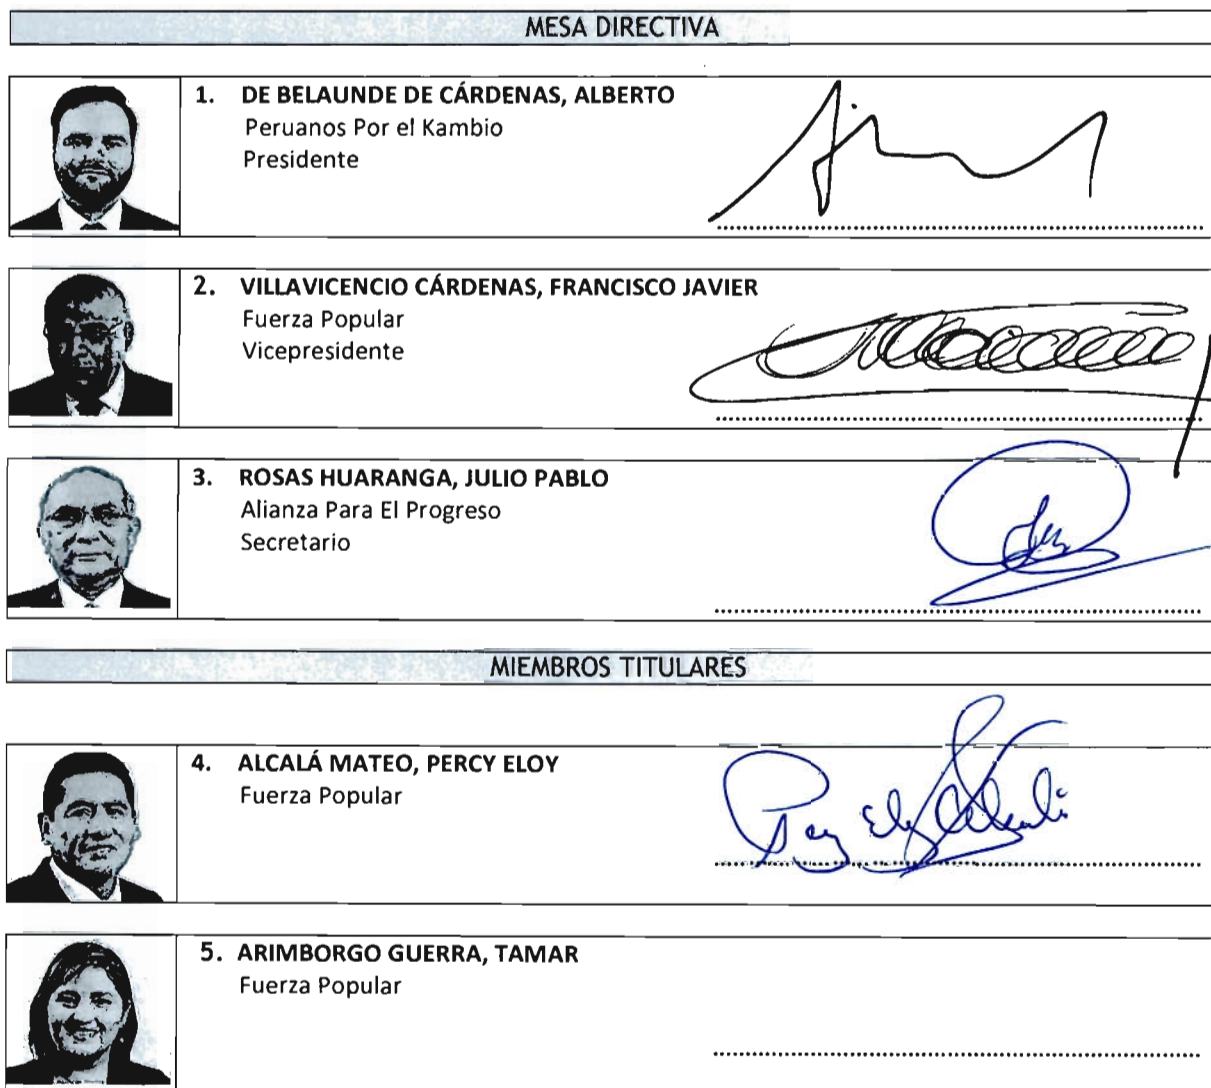 MESA DIRECTIVA
1. DE BELAUNDE DE CÁRDENAS, ALBERTO
Peruanos Por el Kambio
Presidente
2. VILLAVICENCIO CÁRDENAS, FRANCISCO JAVIER
Fuerza Popular
Vicepresidente
3. ROSAS HUARANGA, JULIO PABLO
Alianza Para El Progreso
Secretario
MIEMBROS TITULARES
4. ALCALÁ MATEO, PERCY ELOY
Fuerza Popular
5. ARIMBORGO GUERRA, TAMAR
Fuerza Popular